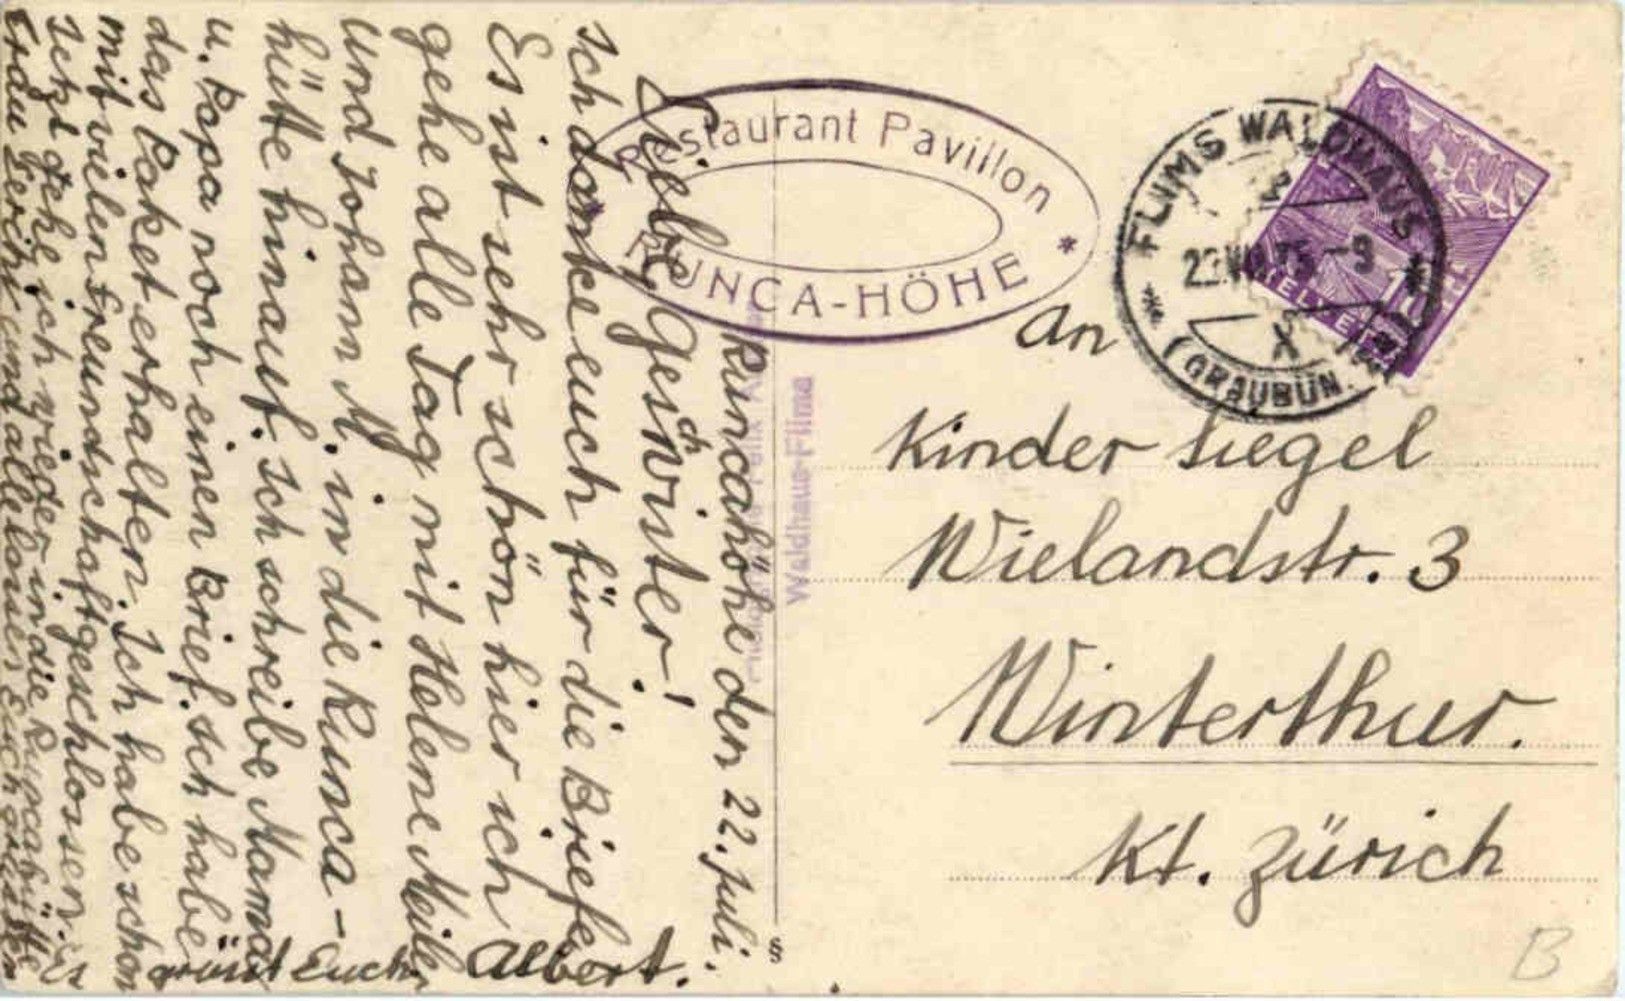 Runcahöhe den 22. Juli.
Liebe Geschwister!
Ich danke euch für die Briefe
Es ist sehr schön hier ich
gehe alle Tag mit Helene Meile
und Johann M. in die Runca-
hütte hinauf. Ich schreibe Mama
u. Papa noch einen Brief. Ich habe
das Paket erhalten. Ich habe schon
mit vielen Freundschaft geschlossen. Es
Jetzt gehe ich wieder in die Runcahütte
und alle lassen Euch
grüsst Euch Albert.
Restaurant Pavillon
RUNCA-HÖHE *
Waldhaus-Flims
FLIMS WALDHAUS
(GRAUBÜN.
HELVETIA
An
Kinder Siegel
Wielandstr. 3
Winterthur.
Kt. Zürich
B